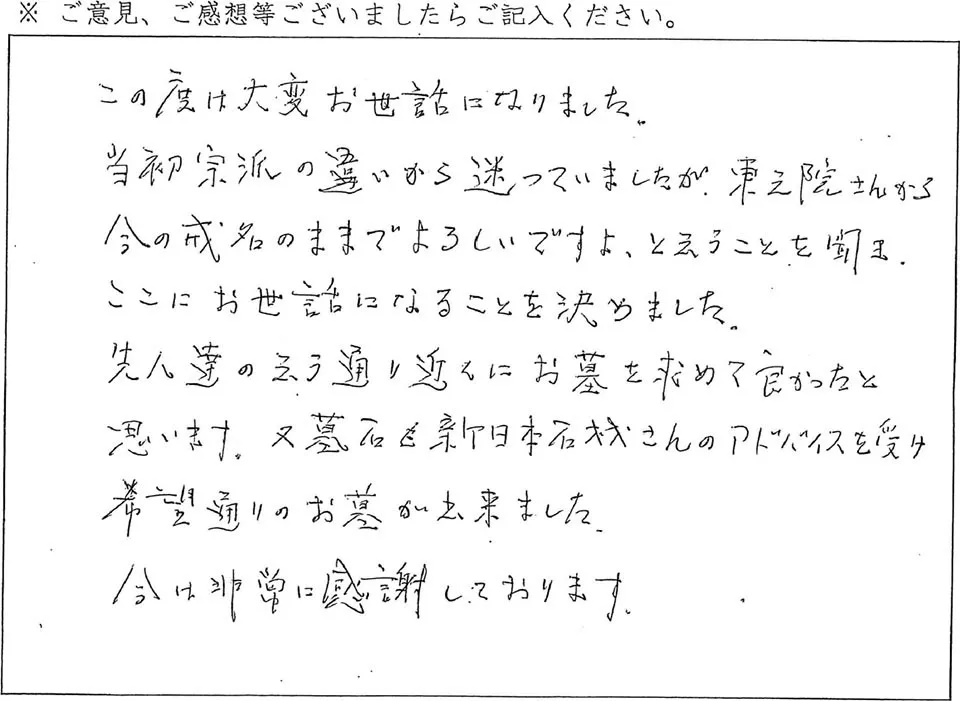 ※ ご意見、ご感想等ございましたらご記入ください。
この度は大変お世話になりました。
当初宗派の違いから迷っていましたが、東之院さんから
今の戒名のままでよろしいですよ、と云うことを聞き、
ここにお世話になることを決めました。
先人達の云う通り近くにお墓を求めて良かったと
思います。又墓石も新日本石材さんのアドバイスを受け
希望通りのお墓が出来ました。
今は非常に感謝しております。